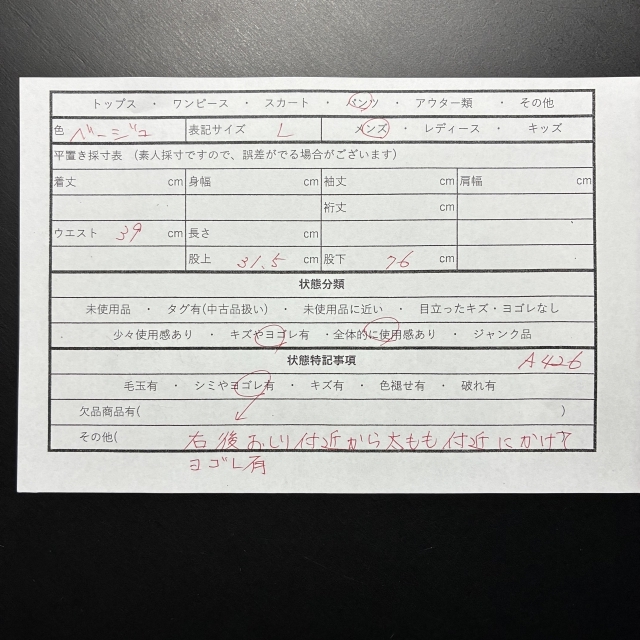 トップス ・ ワンピース ・ スカート ・ パンツ ・ アウター類 ・ その他
色 ベージュ 表記サイズ L メンズ ・ レディース ・ キッズ
平置き採寸表 (素人採寸ですので、誤差がでる場合がございます)
着丈 cm 身幅 cm 袖丈 cm 肩幅 cm
裄丈 cm
ウエスト 39 cm 長さ cm
股上 31.5 cm 股下 76 cm
状態分類
未使用品 ・ タグ有(中古品扱い) ・ 未使用品に近い ・ 目立ったキズ・ヨゴレなし
少々使用感あり ・ キズやヨゴレ有 ・全体的に使用感あり ・ ジャンク品
状態特記事項 A426
毛玉有 ・ シミやヨゴレ有 ・ キズ有 ・ 色褪せ有 ・ 破れ有
欠品商品有( )
その他( 右後おしり付近から太もも付近にかけて
ヨゴレ有